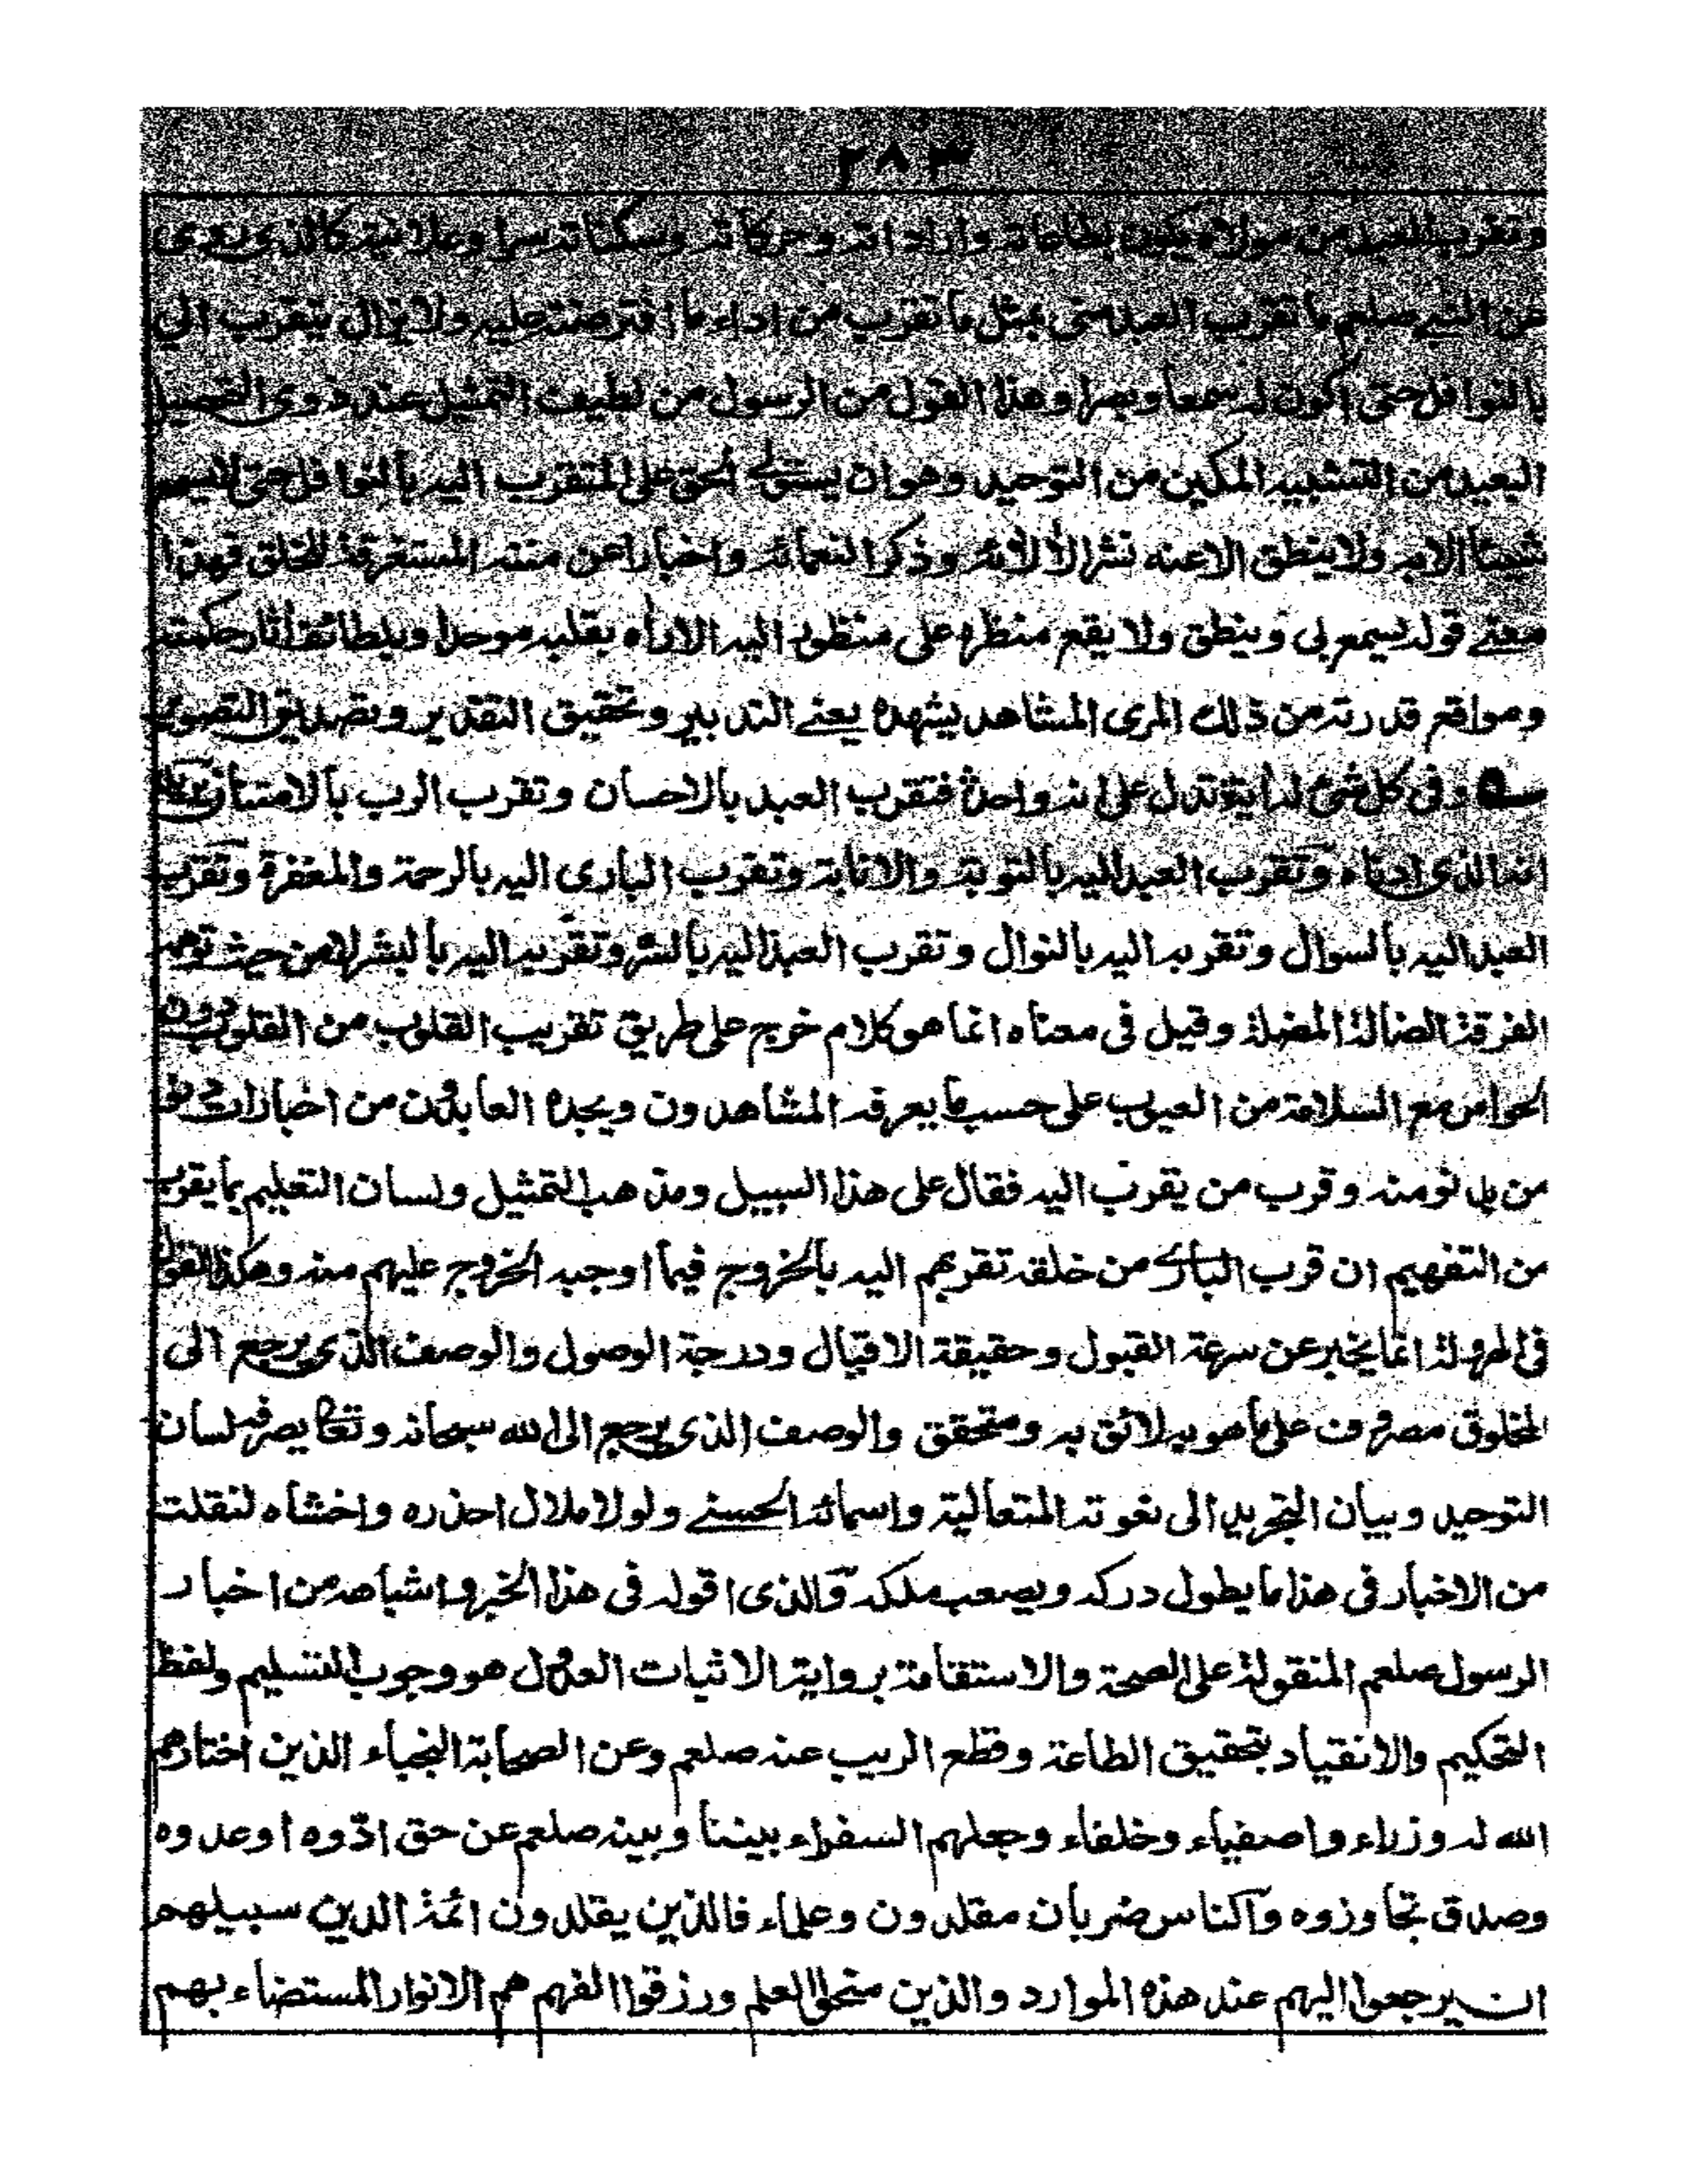 ٢٨٣
وتقرب العبد من مولاه يكون بطاعاته واراداته وحركاته وسكناته سرا وعلانية كالذى روى
عن النبي صلعم ما تقرب العبد منى بمثل ما تقرب من اداء ما افترضته عليه ولا يزال يتقرب الي
بالنوافل حتى اكون له سمعا وبصرا وهذا القول من الرسول من لطيف التمثيل عند ذوى التحصيل
البعيد من التشبيه المكين من التوحيد وهو ان يستولي الحق على المتقرب اليه بالنوافل حتى لا يسمع
شيئا الا به ولا ينطق الا عنه نشرا لآلائه وذكرا لنعمائه واخبارا عن مننه المستغرقة للخلق فهذا
معنے قوله يسمع بى وينطق ولا يقع منظره على منظور اليه الا راٰه بقلبه موحدا وبلطائف اٰثار حكمته
ومواقع قدرته من ذلك المرى المشاهد يشهده يعنے التدبير وتحقيق التقدير وتصديق التصوير
ــه وفى كل شئ له اٰية تدل على انه واحد فتقرب العبد بالاحسان وتقرب الرب بالامتنان يريد
انه الذى ادناه وتقرب العبد اليه بالتوبة والانابة وتقرب البارى اليه بالرحمة والمغفرة وتقرب
العبد اليه بالسوال وتقربه اليه بالنوال وتقرب العبد اليه بالسر وتقربه اليه بالبشر لا من حيث توهمه
الفرقة الضالة المضلة وقيل فى معناه انما هو كلام خرج على طريق تقريب القلوب من القلوب دون
الحواس مع السلامة من العيوب على حسب ما يعرفه المشاهدون ويجده العابدون من اخبار
من يدنو منه وقرب من يقرب اليه فقال على هذا السبيل ومذهب التمثيل ولسان التعليم بما يقرب
من التفهيم ان قرب البارے من خلقه تقربهم اليه بالخروج فيما اوجبه الخروج عليهم منه وهكذا القول
فى الهرولة انما يخبر عن سرعة القبول وحقيقة الاقبال ودرجة الوصول والوصف الذى يرجع الى
المخلوق مصروف على ما هو به لائق به ومتحقق والوصف الذى يرجع الى الله سبحانه وتعالى يصرفه لسان
التوحيد وبيان التجريد الى نعوته المتعالية واسمائه الحسنے ولولا ملال احذره واخشاه لنقلت
من الاخبار فى هذا ما يطول دركه ويصعب ملكه والذى اقوله فى هذا الخبر واشباهه من اخبار
الرسول صلعم المنقولة على الصحة والاستقامة برواية الاثبات العدول هو وجوب التسليم ولفظ
التحكيم والانقياد بتحقيق الطاعة وقطع الريب عنه صلعم وعن الصحابة النجباء الذين اختارهم
الله له وزراء واصفياء وخلفاء وجعلهم السفراء بيننا وبينه صلعم عن حق ادّوه او عدوه
وصدق تجاوزوه والناس ضربان مقلدون وعلماء فالذين يقلدون ائمة الدين سبيلهم
ان يرجعوا اليهم عند هذه الموارد والذين منحوا العلم ورزقوا الفهم هم الانوار المستضاء بهم